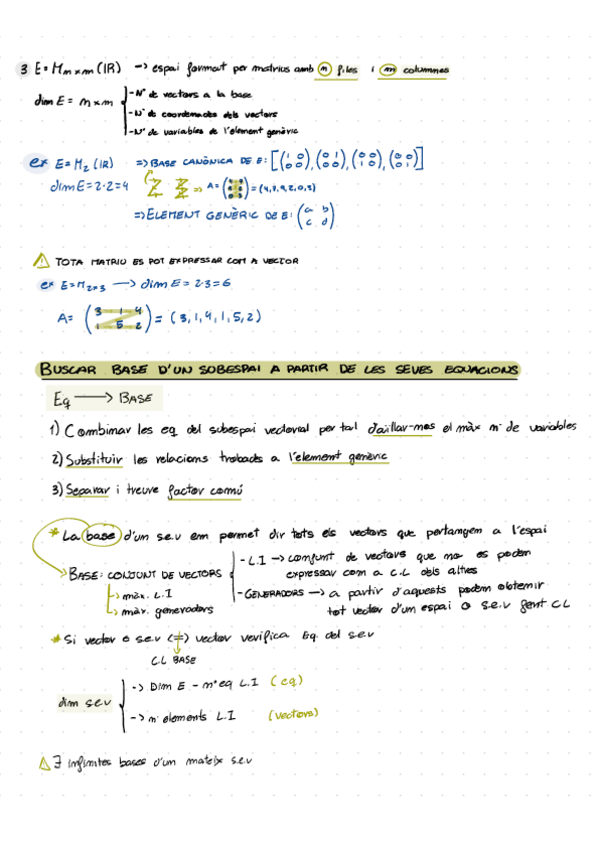 3 E = M m×n (IR) -> espai format per matrius amb m files i n columnes
dim E = m×n
- Nº de vectors a la base
- Nº de coordenades dels vectors
- Nº de variables de l'element genèric
ex E = M₂ (IR) => BASE CANÒNICA DE E: [(1 0 / 0 0), (0 1 / 0 0), (0 0 / 1 0), (0 0 / 0 1)]
dim E = 2·2 = 4
=> ELEMENT GENÈRIC DE E: (a b / c d)
⚠ TOTA MATRIU ES POT EXPRESSAR COM A VECTOR
ex E = M₂ₓ₃ -> dim E = 2·3 = 6
A = (3 1 4 / 1 5 2) = (3, 1, 4, 1, 5, 2)
BUSCAR BASE D'UN SUBESPAI A PARTIR DE LES SEVES EQUACIONS
Eq -> BASE
1) Combinar les eq del subespai vectorial per tal d'aïllar-nos el màx nº de variables
2) Substituir les relacions trobades a l'element genèric
3) Separar i treure factor comú
* La base d'un s.e.v em permet dir tots els vectors que pertanyen a l'espai
BASE: CONJUNT DE VECTORS
-> màx. L.I
-> màx. generadors
- L.I -> conjunt de vectors que no es poden
expressar com a C.L dels altres
- GENERADORS -> a partir d'aquests podem obtenir
tot vector d'un espai o s.e.v fent C.L
* Si vector ∈ s.e.v <=> vector verifica Eq del s.e.v
C.L BASE
dim s.e.v
-> Dim E - nº eq L.I (eq)
-> nº elements L.I (vectors)
⚠ ∃ infinites bases d'un mateix s.e.v